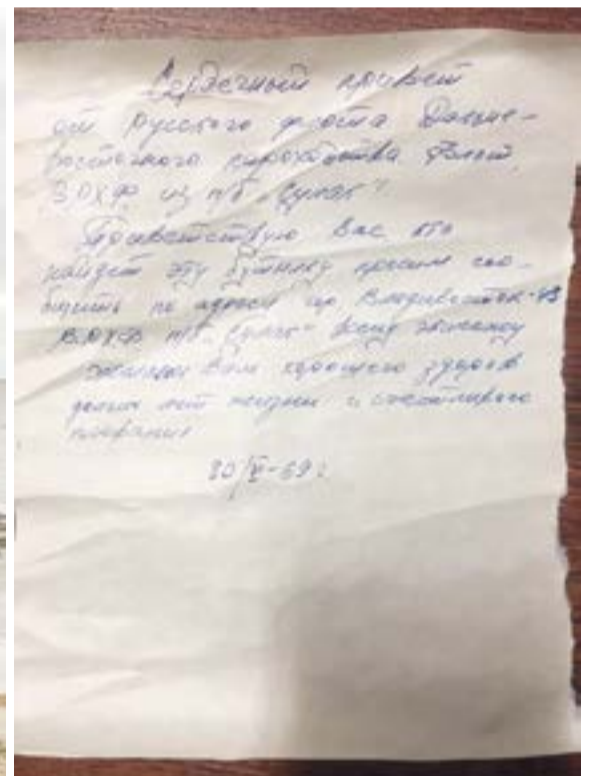 Сердечный привет
от Русского флота Дальне-
восточного пароходства
ВРХФ из п/б „Сулак“.
Приветствую Вас кто
найдет эту бутылку просим сооб-
щить по адресу гр. Владивосток-43
ВРХФ п/б „Сулак“ всему экипажу
желаем Вам хорошего здоров
долгих лет жизни и счастливого
плавания